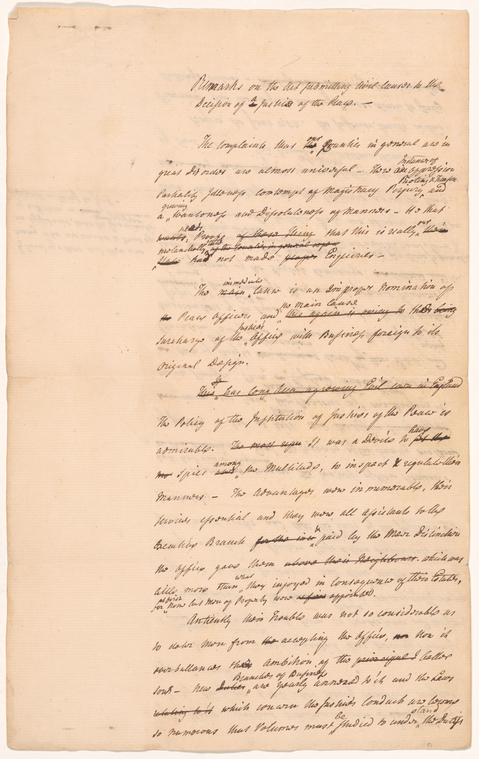 Remarks on the Act submitting civil Causes to the
Decision of 2 Justices of the Peace. —
The Complaints that our the Counties in general are in
great Disorder are almost universal — There
Instances of
an oppression
Partiality Idleness, Contempt of Magistracy Perjury and
growing
a Wantonness and Dissoluteness of Manners — He that
needs
Proofs of these Things that this is really our
melancholly State
has not made Enquiries —
immediate
The Cause is an improper Nomination of
no main Cause
the Peace Officers and this again is owing to their being
surcharge of the Office with Business foreign to its
original Design.
This has long been a growing Evil even in England
The Policy of the Institution of Justices of the Peace is
admirable. The most It was a Device to have
Spies among the Multitude, to inspect & regulate their
Manners — The Advantages were innumerable, their
Services essential and they were all assistants to the
Executive Branch for the paid by the mere Distinction
the Office gave them above their Neighbours which was
all, more than what they enjoyed in Consequence of their Estates,
for none but Men of Property were appointed.
Antiently their Trouble was not so considerable as
to deter Men from the accepting the Office, nor non it
overballances the Ambition of the principal better
Branches of Business
sort — New Duties are yearly annexed to it and the Laws
relating to it which concern the Justices Conduct are become
so numerous that Volumes must be studied to understand the Duties